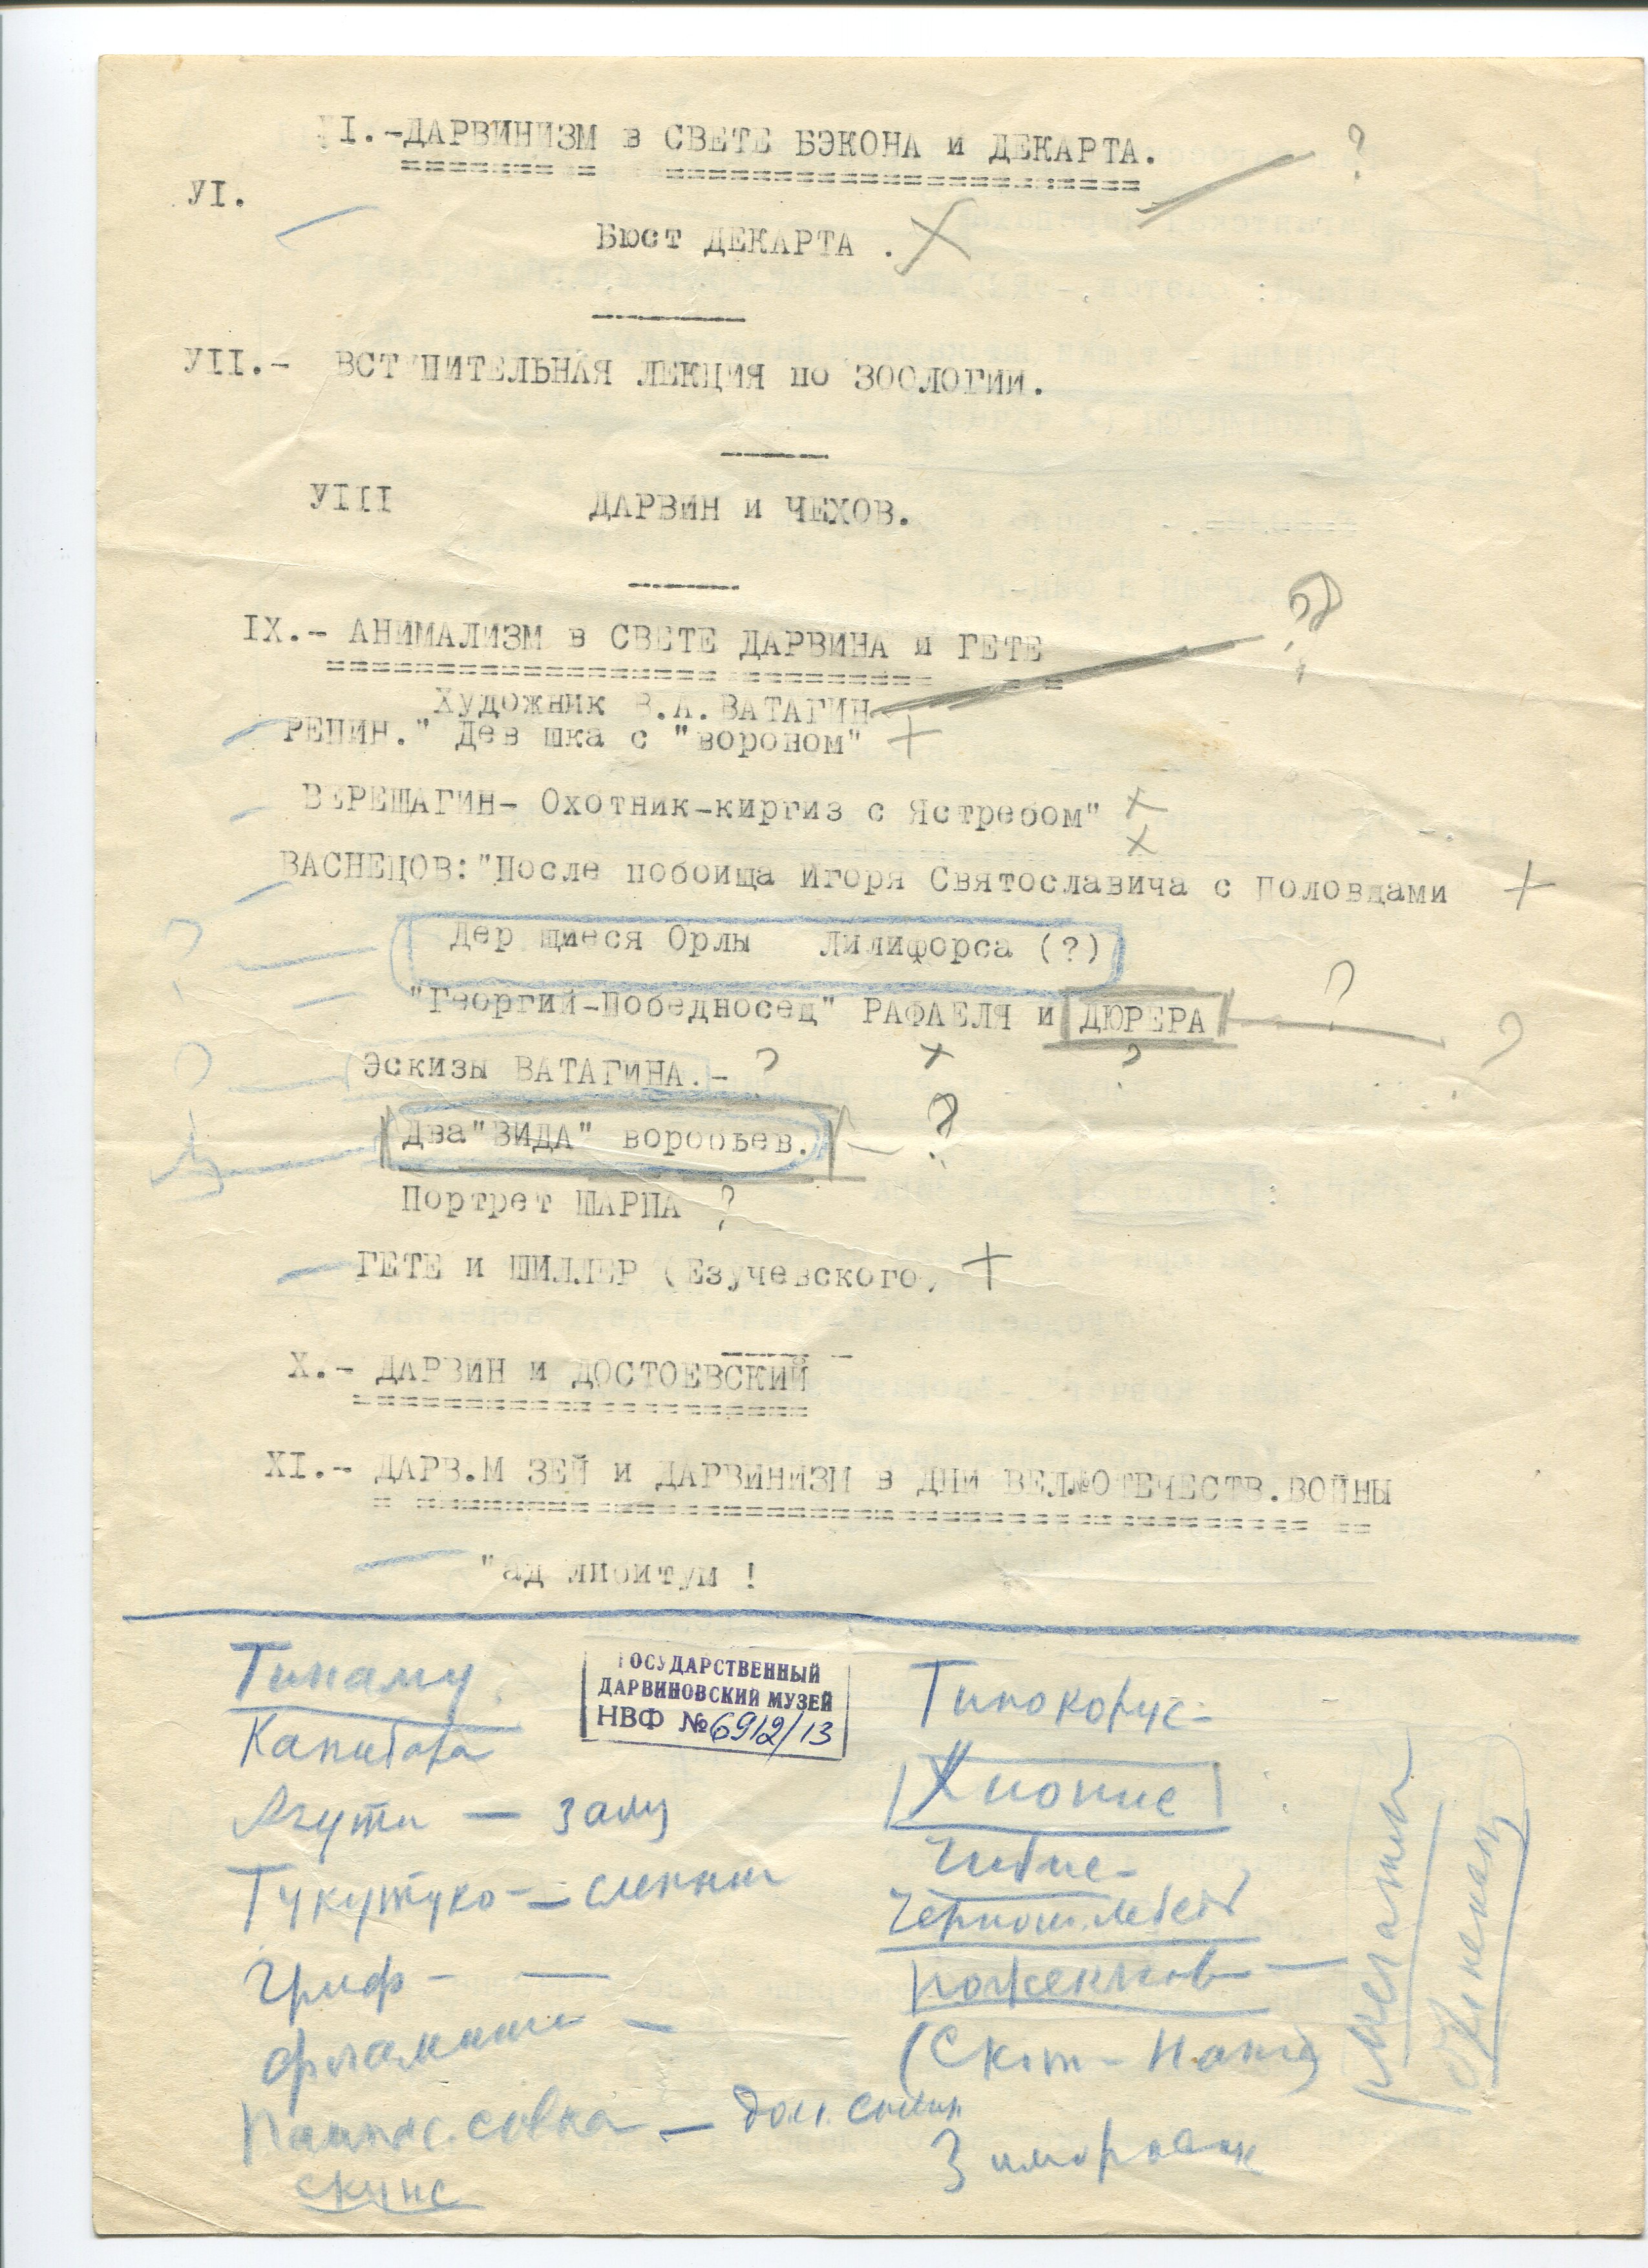 УI.-ДАРВИНИЗМ в СВЕТЕ БЭКОНА и ДЕКАРТА. ?
УI.
Бюст ДЕКАРТА .
УII.- ВСТ ПИТЕЛЬНАЯ ЛЕКЦИЯ по ЗООЛОГИИ.
УIII ДАРВИН и ЧЕХОВ.
IX.- АНИМАЛИЗМ в СВЕТЕ ДАРВИНА и ГЕТЕ ?
Художник В.А.ВАТАГИН
РЕПИН." Дев шка с "вороном" +
ВЕРЕЩАГИН- Охотник-киргиз с Ястребом" +
ВАСНЕЦОВ:"После побоища Игоря Святославича с Половцами +
? Дер щиеся Орлы Лилифорса (?)
"Георгий-Победносец" РАФАЕЛЯ и ДЮРЕРА ?
? Эскизы ВАТАГИНА.- ? + ? ?
Два"ВИДА" воробьев. ?
Портрет ШАРПА ?
ГЕТЕ и ШИЛЛЕР (Езучевского) +
X.- ДАРВИН и ДОСТОЕВСКИЙ
XI.- ДАРВ.М ЗЕЙ и ДАРВИНИЗМ в ДНИ ВЕЛ№ОТЕЧЕСТВ.ВОЙНЫ
"ад либитум !
ГОСУДАРСТВЕННЫЙ
ДАРВИНОВСКИЙ МУЗЕЙ
НВФ № 6912/13
Тинаму
Капибара
Агути — залу
Тукутуко — слепыш
Гриф -
Фламинго -
Пампас. совка —
скунс
Тинокорус -
Хионис
Чибис -
Черношл. лебедь
Ножеклюв —
Зимородок